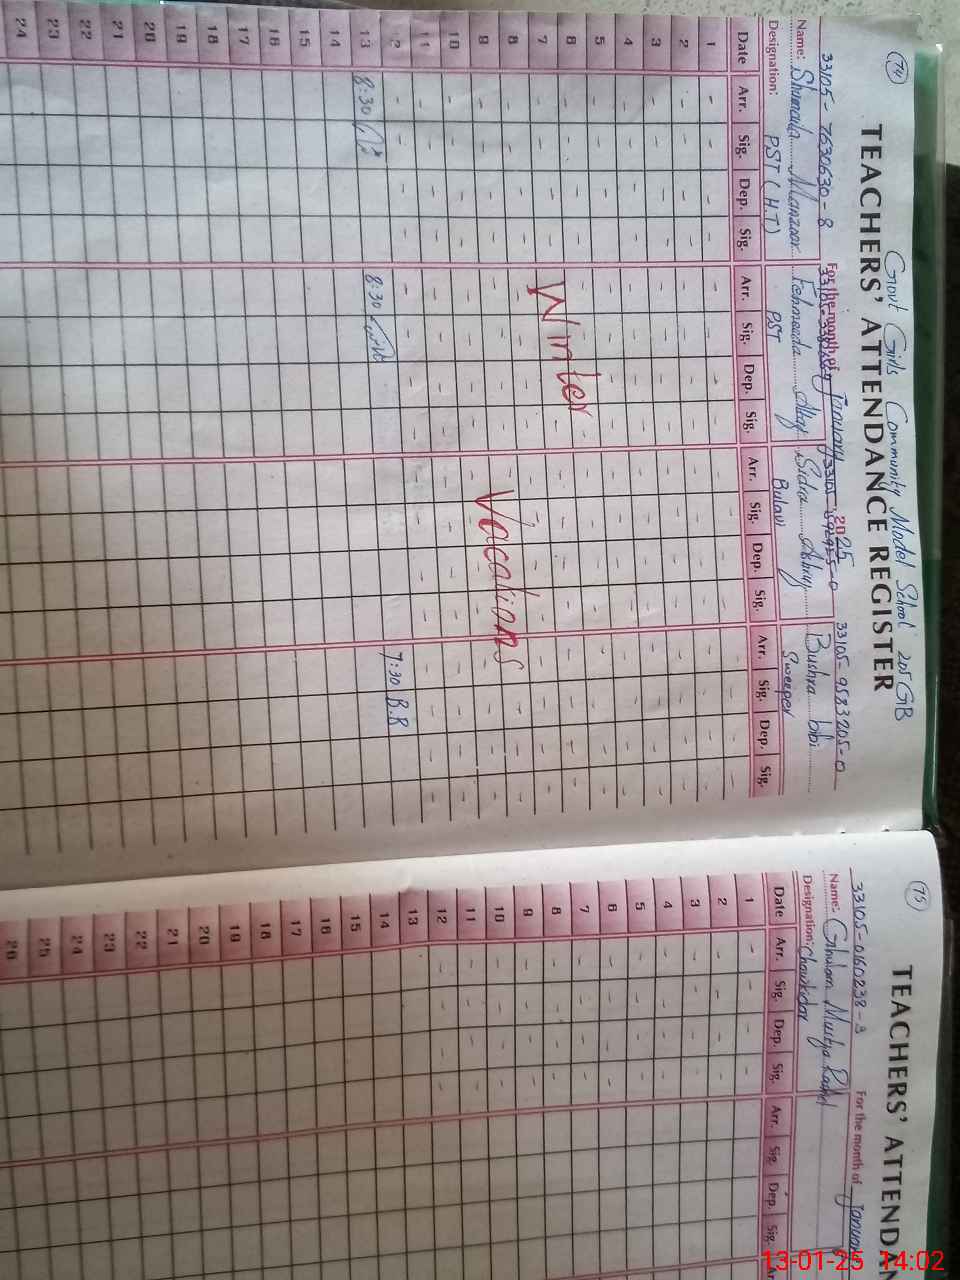 (74)
Govt Girls Community Model School 205 GB
TEACHERS' ATTENDANCE REGISTER
33105-7630630-8
For the month of January 2025
33105-9583205-0
Name: Manzoor Fehmeeda Sidra Bushra bibi
Designation: PST (H.T) PST Sweeper
Date Arr. Sig. Dep. Sig. Arr. Sig. Dep. Sig. Arr. Sig. Dep. Sig. Arr. Sig. Dep. Sig.
1 - - - - - - - - - - - - - - - -
2 - - - - - - - - - - - - - - - -
3 - - - - - - - - - - - - - - - -
4 - - - - - - - - - - - - - - - -
5 - - - - - - - - - - - - - - - -
6 - - - - - - - - - - - - - - - -
7 - - - - - - - - - - - - - - - -
8 - - - - - - - - - - - - - - - -
9 - - - - - - - - - - - - - - - -
10 - - - - - - - - - - - - - - - -
11 - - - - - - - - - - - - - - - -
12 - - - - - - - - - - - - - - - -
Winter
Vacations
13 8:30 8:30 7:30 B.B
14
15
16
17
18
19
20
21
22
23
24
(75)
TEACHERS' ATTENDAN
33105-0160238-3
For the month of January
Name: Ghulam
Designation: Chowkidar
Date Arr. Sig. Dep. Sig. Arr. Sig. Dep. Sig. Ar
1 - - - -
2 - - - -
3 - - - -
4 - - - -
5 - - - -
6 - - - -
7 - - - -
8 - - - -
9 - - - -
10 - - - -
11 - - - -
12 - - - -
13
14
15
16
17
18
19
20
21
22
23
24
25
26
13-01-25 14:02